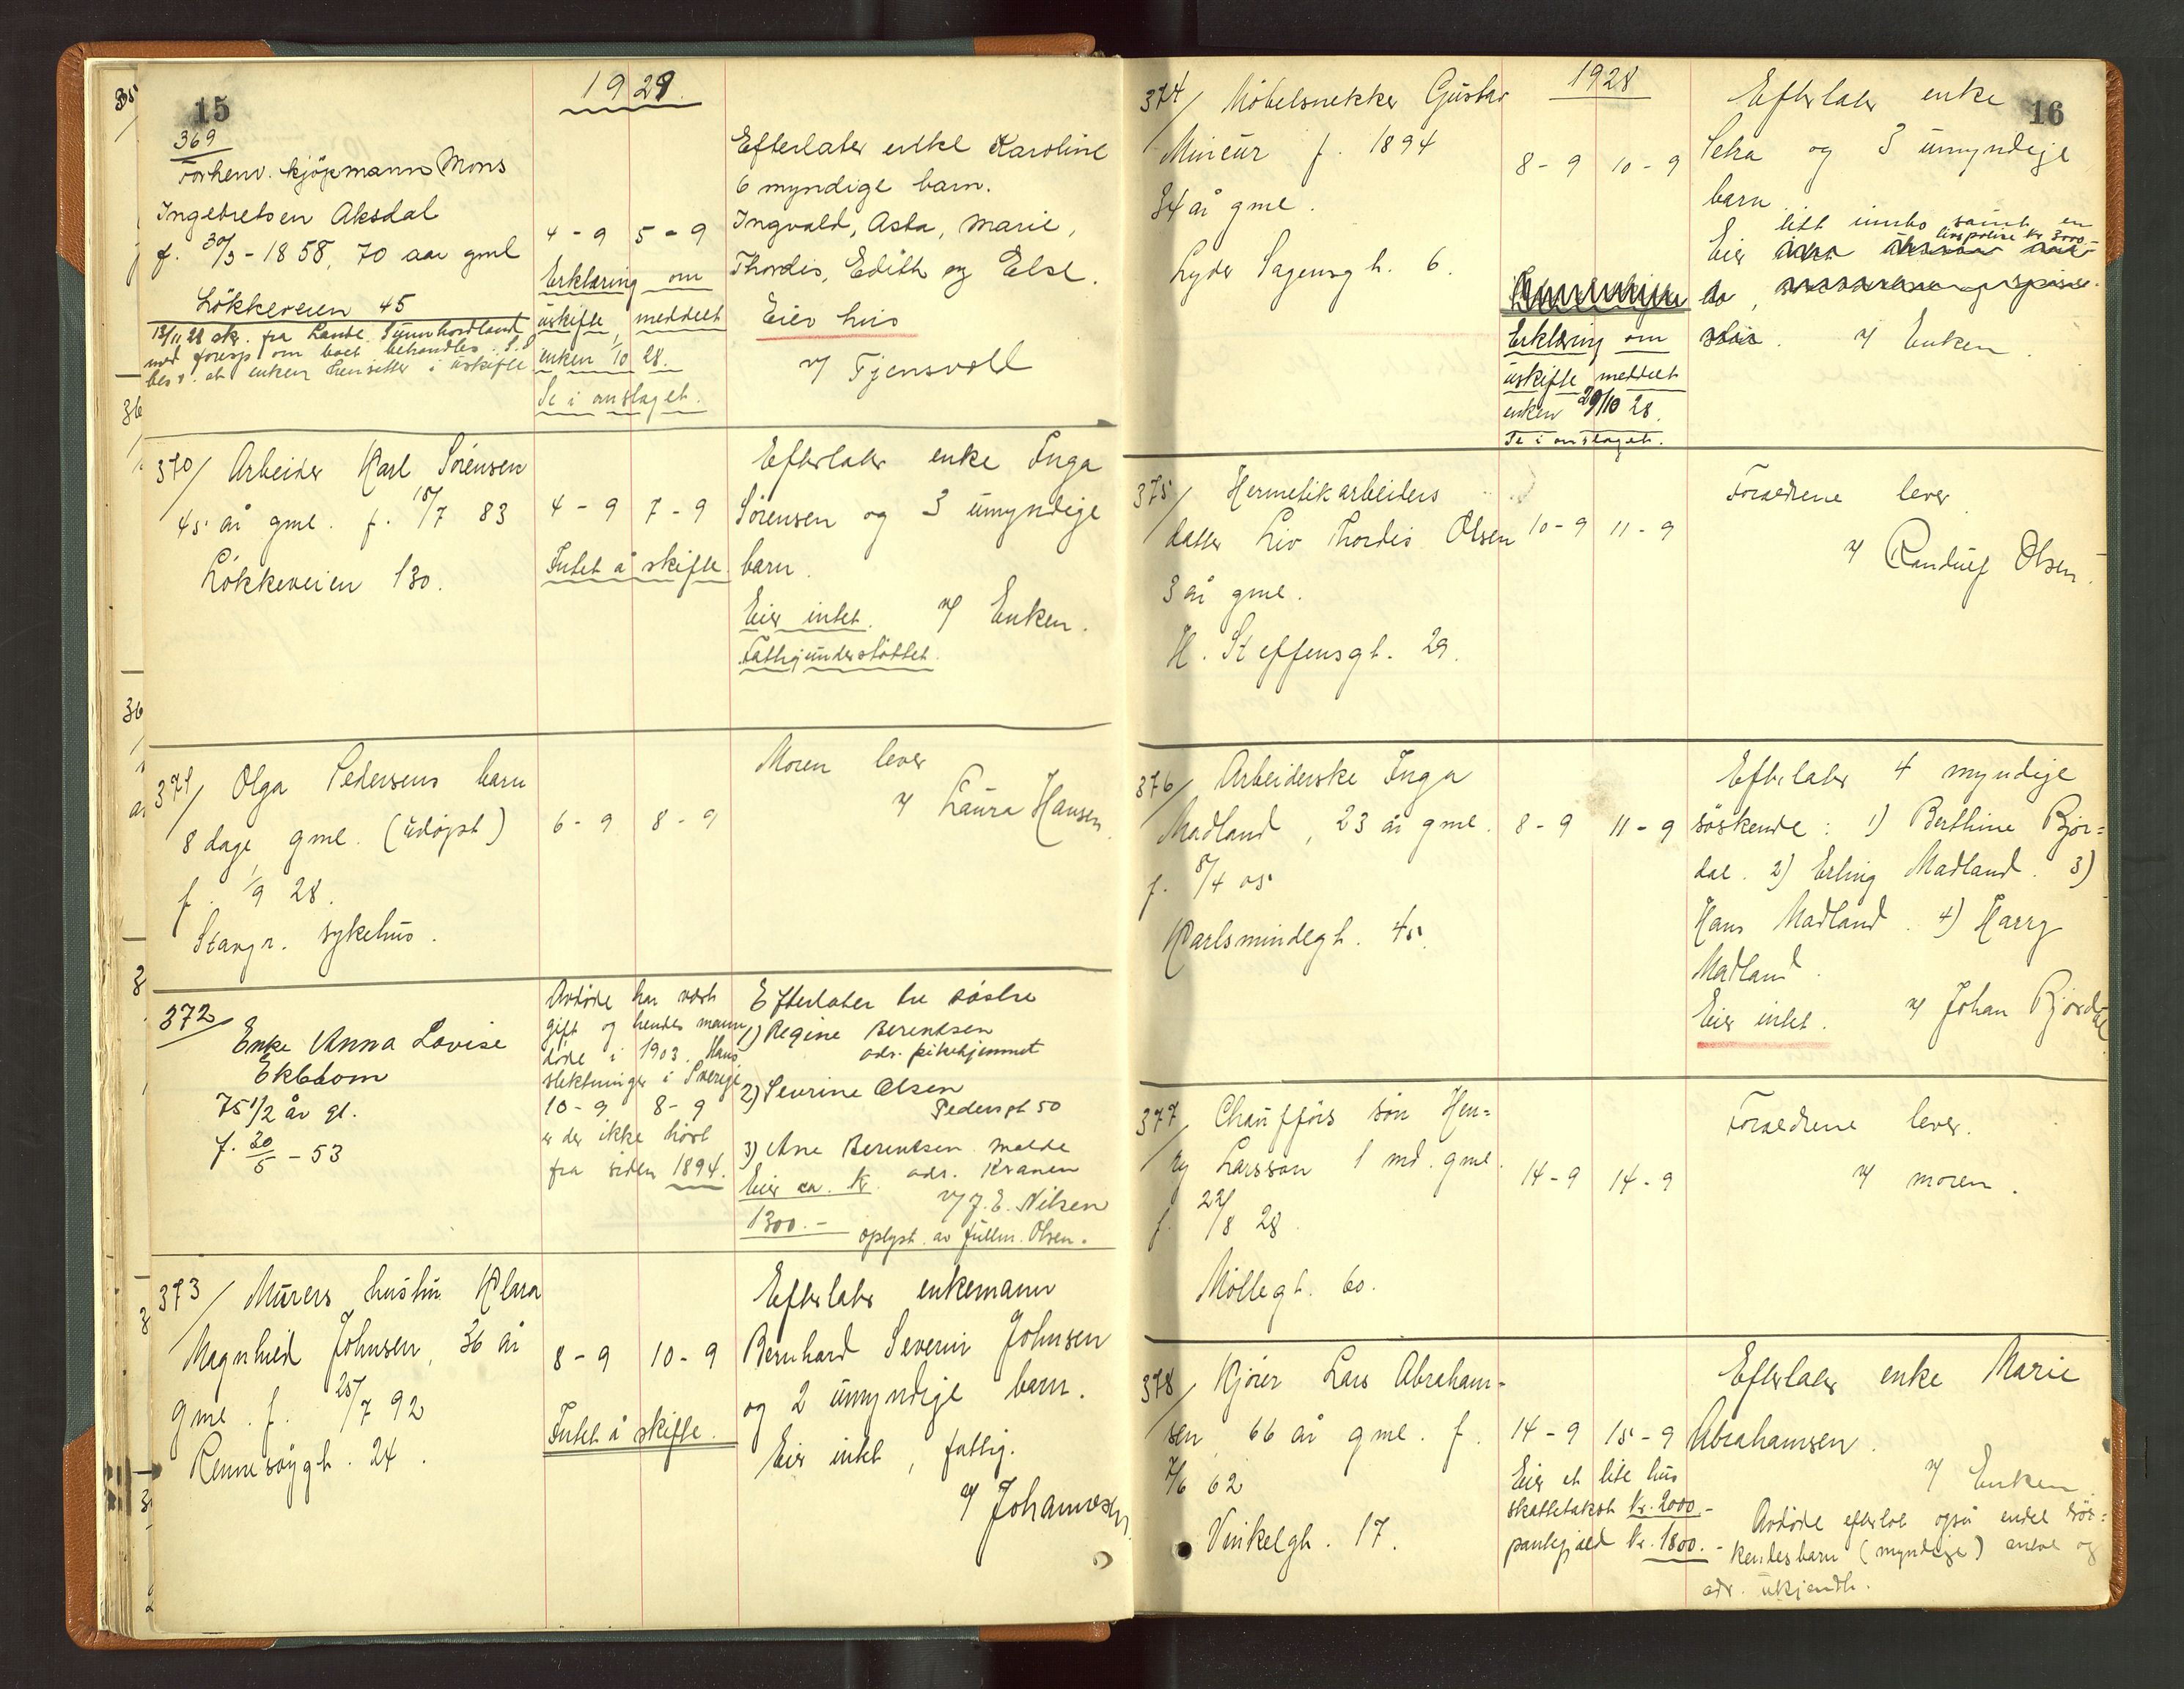 15
1928
369
Forhenv. kjøpmann Mons
Ingebretsen Aksdal
f. 30/3 - 1858, 70 aar gml
Løkkeveien 45
13/11 28 skr. fra Lensm. Sunnhordland
med foresp. om boet behandles. S.d
besv. at enken hensitter i uskifte
4 - 9 5 - 9
Erklæring om
uskifte meddelt
enken 1/10 28.
Se i omslaget.
Efterlater enke Karoline
6 myndige barn.
Ingvald, Asta, Marie,
Thordis, Edith og Else.
Eier hus
v/ Tjensvold
370/ Arbeider Karl Sørensen
45 år gml. f. 15/7 83
Løkkeveien 130.
4 - 9 7 - 9
Intet å skifte
Efterlater enke Inga
Sørensen og 3 umyndige
barn.
Eier intet. v/ Enken.
Fattigunderstøttet.
371/ Olga Pedersens barn
8 dage gml. (udøpt)
f. 1/9 28.
Stavgr. sykehus.
6 - 9 8 - 9
Moren lever
v/ Laura Hansen
372/
Enke Anna Lovise
Ekblom
75 1/2 år gl.
f. 20/5 - 53
Avdøde har vært
gift og hendes mann
døde i 1903. Hans
slektninger i Sverige
10 - 9 8 - 9
er der ikke hørt
fra siden 1894.
Efterlater tre søstre
1) Regine Berentsen
adr. pikehjemmet
2) Severine Olsen
Pedersgt 50
3) Ane Berentsen Molde
adr. Kranen
Eier ca. kr.
1300.-
v/ J. E. Nilsen
oplyst av fullm. Olsen.
373/ Murers hustru Klara
Magnhild Johnsen, 36 år
gml. f. 25/7 92
Rennesøygt. 24.
8 - 9 10 - 9
Intet å skifte.
Efterlater enkemann
Bernhard Severin Johnsen
og 2 umyndige barn.
Eier intet, fattig.
v/ Johannesen
16
1928
374/ Møbelsnekker Gustav
Mineur f. 1894
34 år gml.
Lyder Sagensgt. 6.
8 - 9 10 - 9
Erklæring om
uskifte meddelt
enken 29/10 28.
Se i omslaget.
Efterlater enke
og 3 umyndige
barn.
litt innbo samt en
livspolise kr. 3000.-
Eier
v/ Enken.
375/ Hermetikarbeiders
datter Liv Thordis Olsen
3 år gml.
H. Steffensgt. 29.
10 - 9 11 - 9
Foraeldrene lever
v/ Randulf Olsen.
376/ Arbeiderske Inga
Madland, 23 år gml.
f. 8/4 05
Karlsmindegt. 45.
8 - 9 11 - 9
Efterlater 4 myndige
søskende: 1) Berthine Bjor=
dal. 2) Erling Madland. 3)
Hans Madland. 4) Harry
Madland.
Eier intet. v/ Johan Bjordal
377/ Chaufførs søn Hen=
ry Larsson 1 md. gml.
f. 22/8 28.
Møllegt. 60.
14 - 9 14 - 9
Foraeldrene lever.
v/ moren.
378/ Kjører Lars Abraham-
sen 66 år gml. f.
7/6 62
Vinkelgt. 17.
14 - 9 15 - 9
Eier et lite hus
skattetakst kr. 2000.-
pantegjæld kr. 1800.-
Efterlater enke Marie
Abrahamsen.
v/ Enken.
Avdøde efterlot også endel søs=
kendebarn (myndige) antal og
adr. ukjendt.